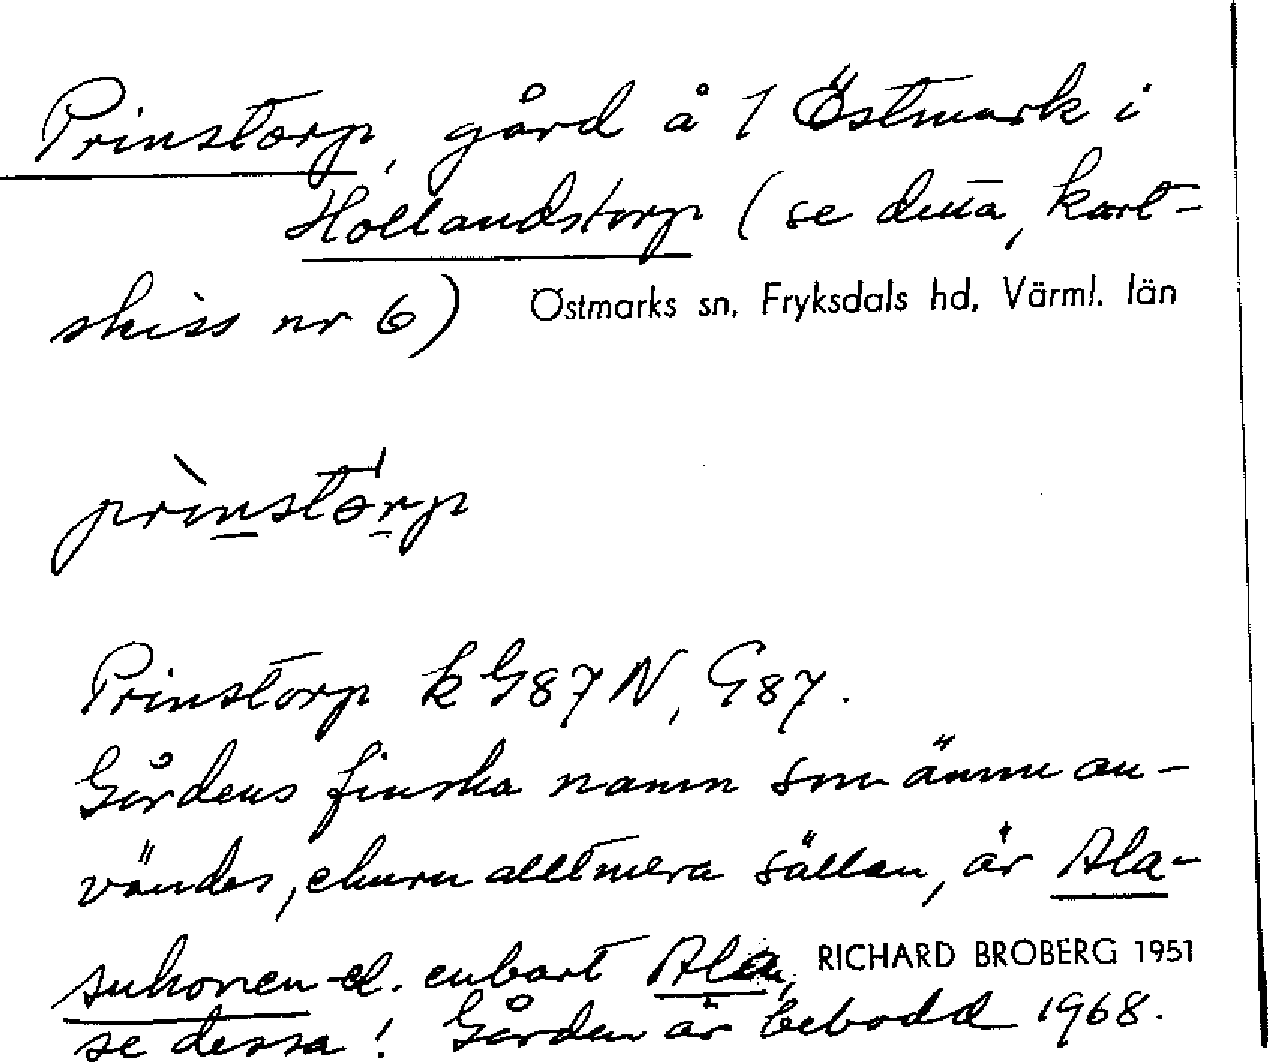 Prinstorp, gård å 1 Östmark i
Hollandstorp (se detta, kart-
skiss nr 6) Östmarks sn, Fryksdals hd, Värml. län
prinstorp
Prinstorp k G87N, G87.
Gårdens finska namn som ännu an-
vändes, churu alltmera sällan, är Ala-
suhonen el. enbart Ala, RICHARD BROBERG 1951
se dessa! Gården är bebodd 1968.